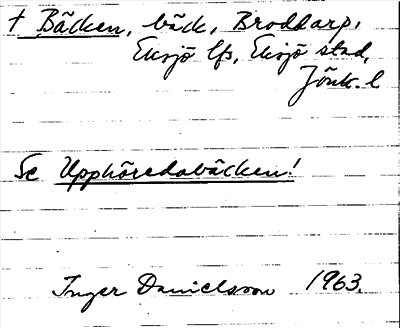 † Bäcken, bäck, Broddarp,
Eksjö lfs, Eksjö stad,
Jönk. l
Se Upphöredabäcken!
Inger Danielsson 1963.